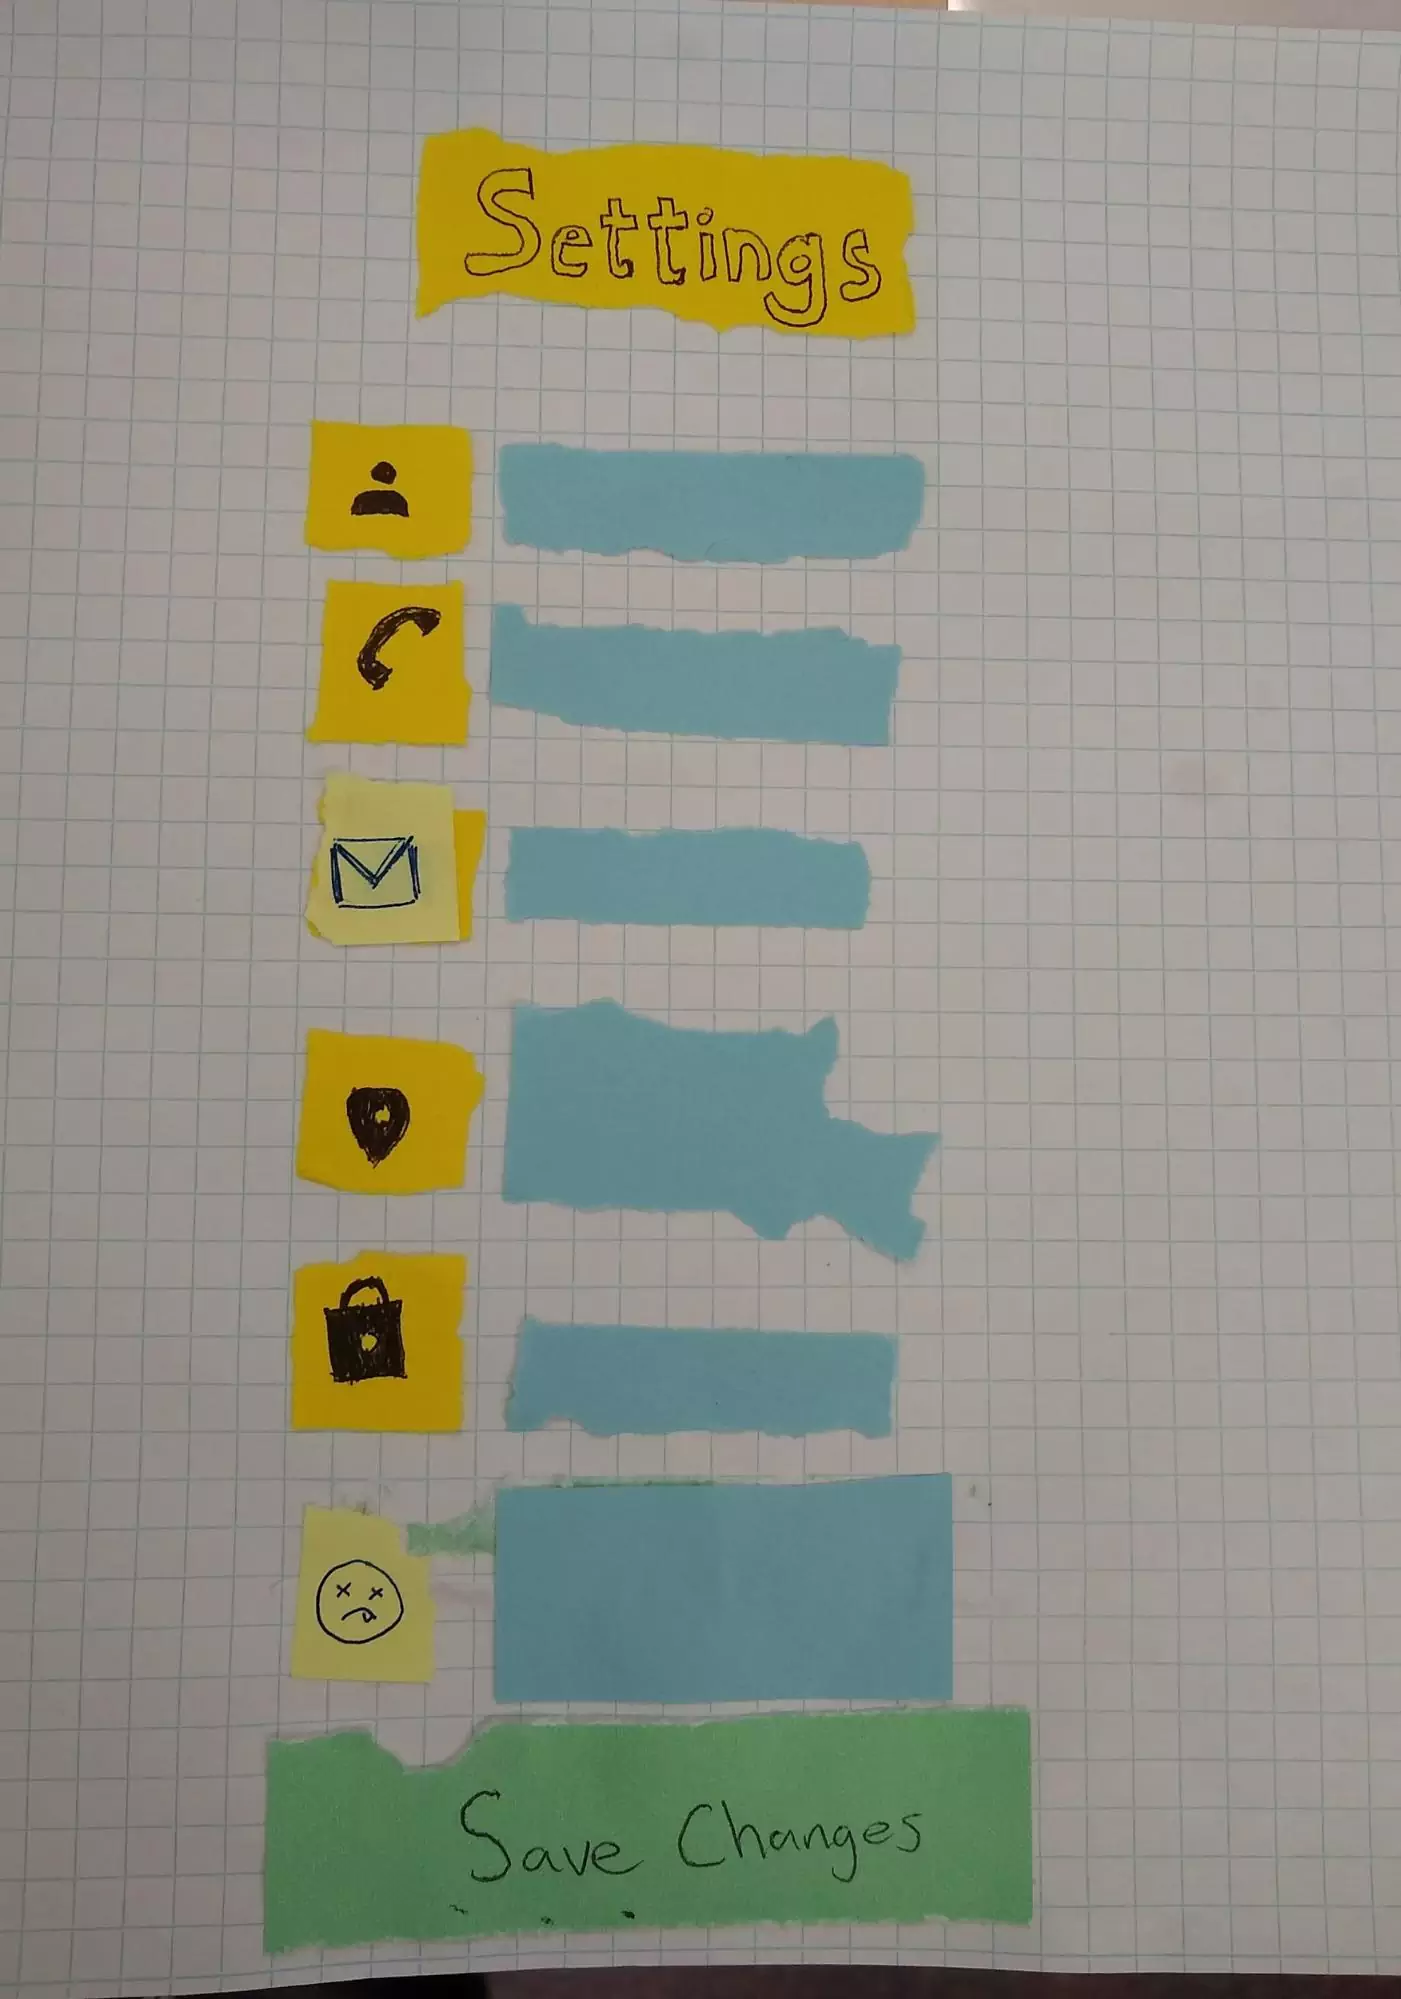 Settings
Save Changes